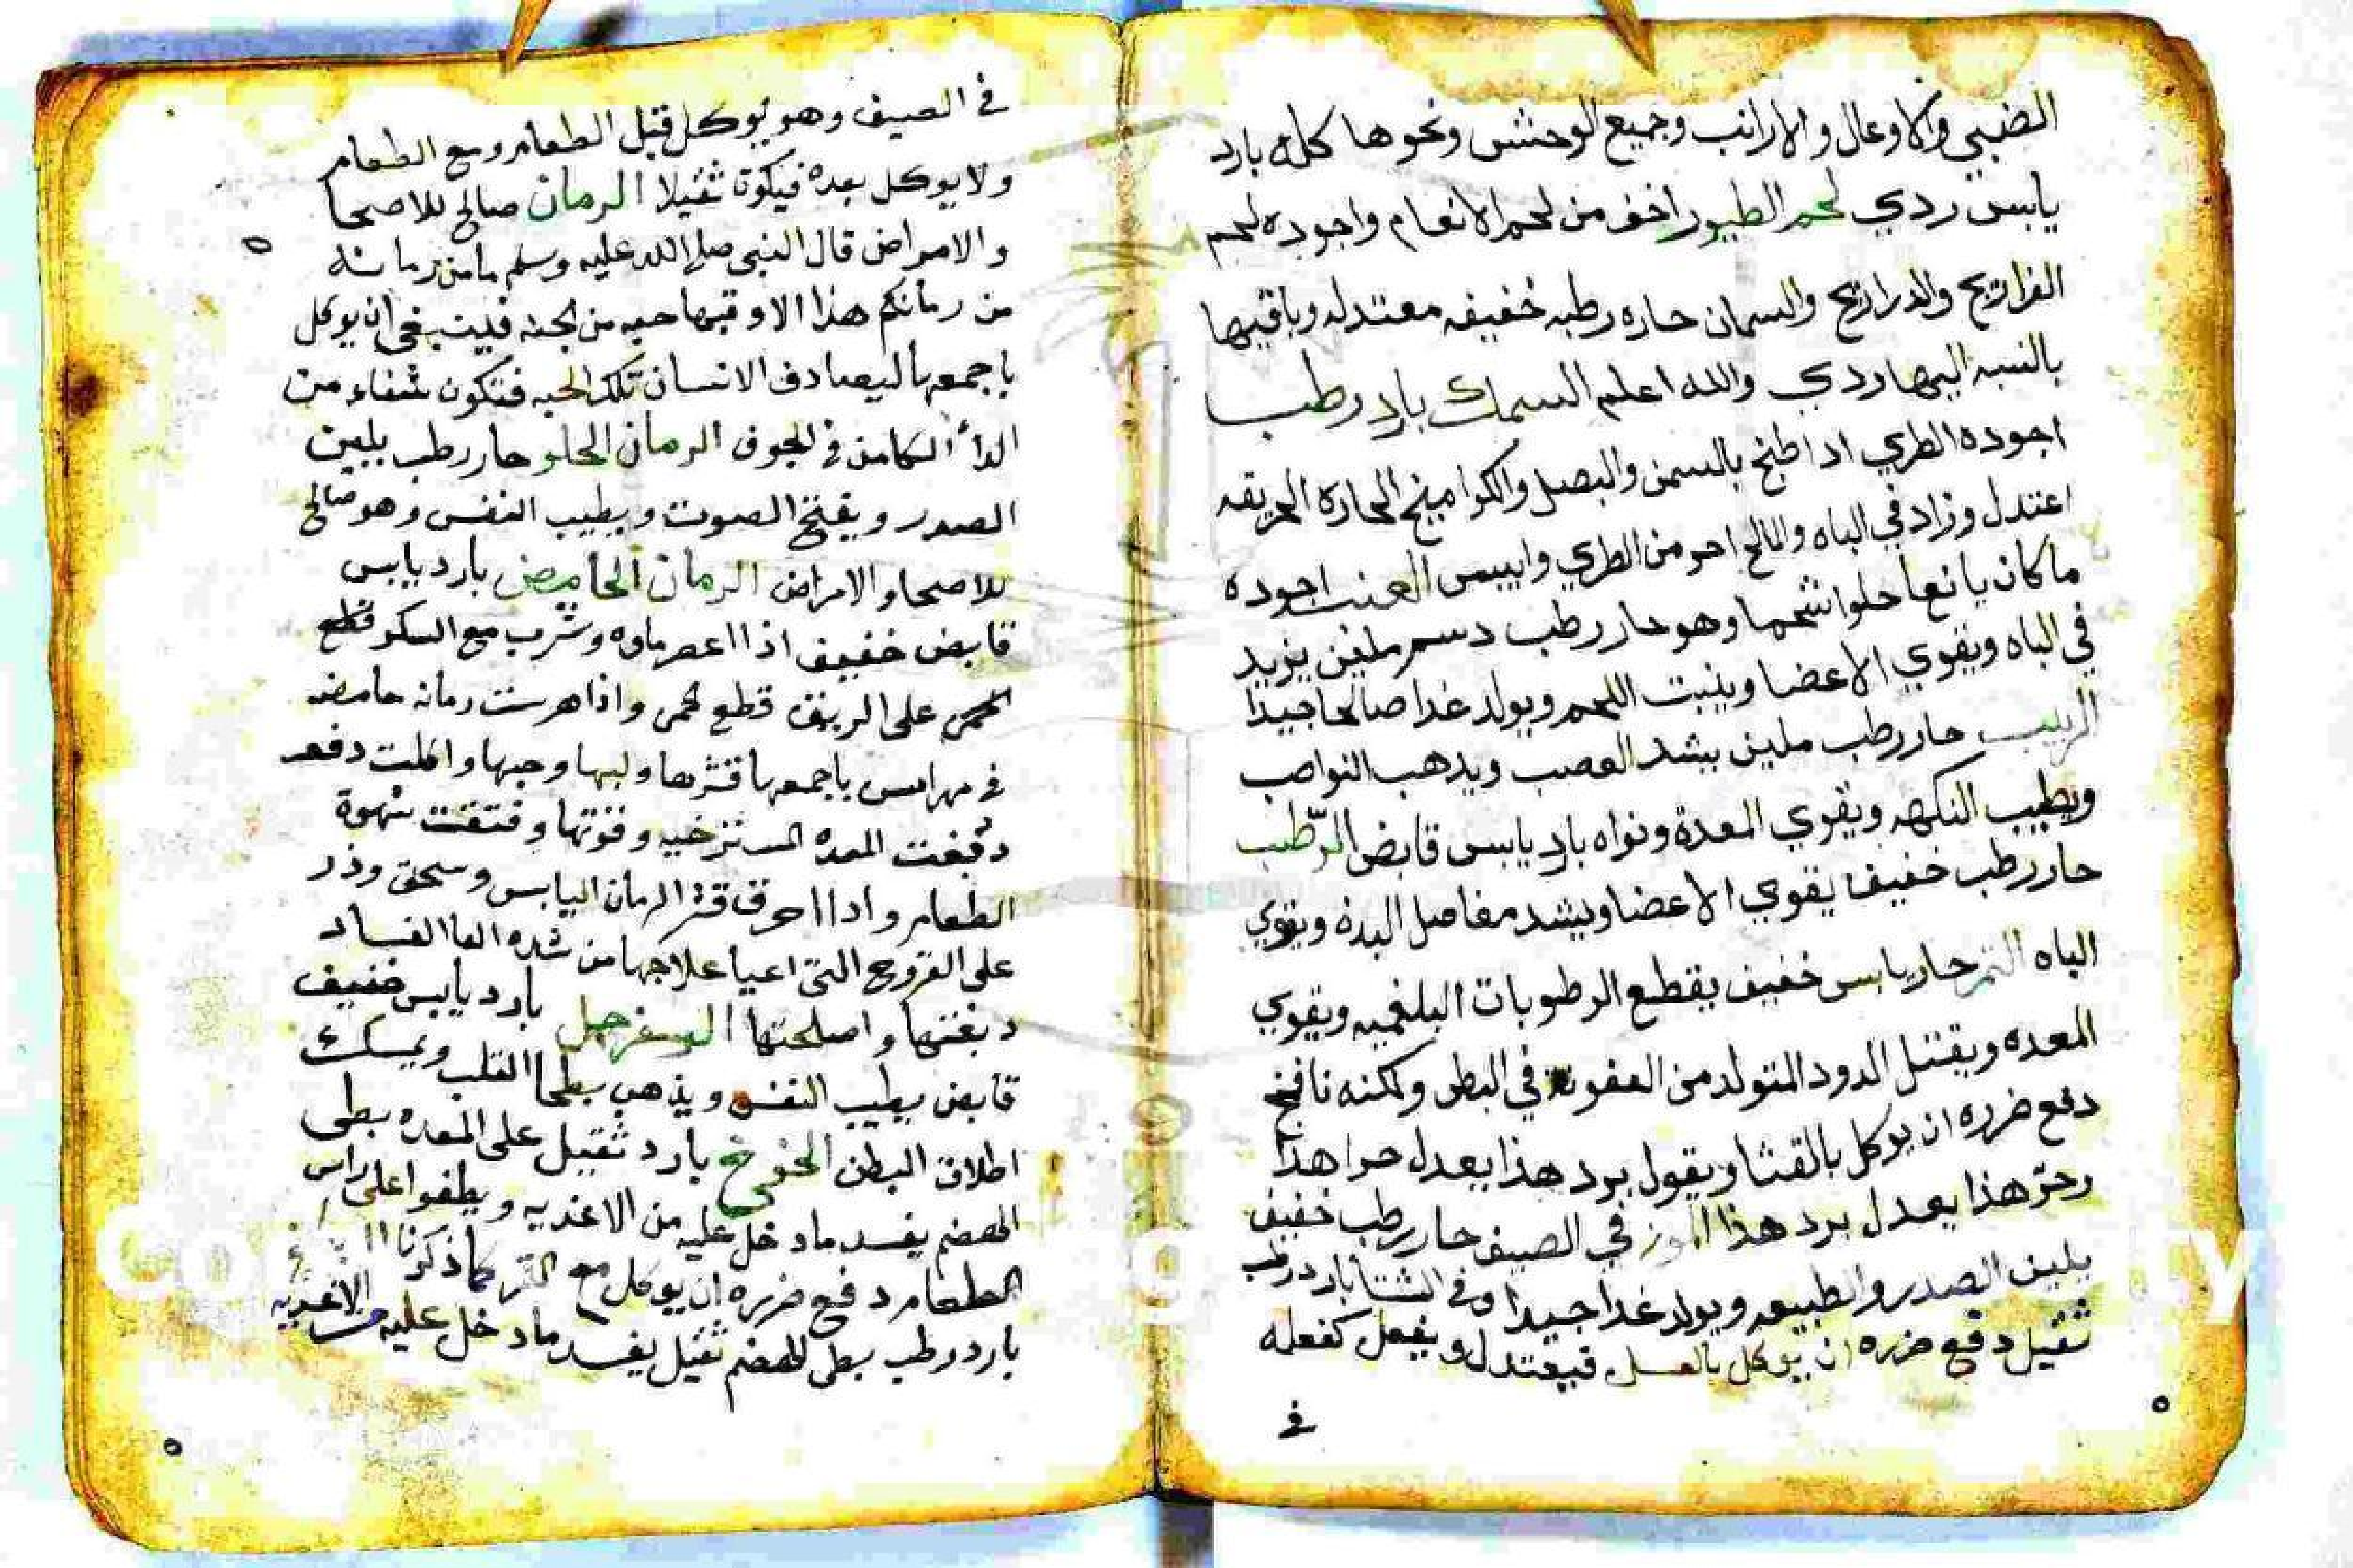 الضبي والاوعال والارانب وجميع الوحشس ونحوها كله بارد
يابس ردي لحم الطيور اخف من لحم الانعام واجوده لحم
الفراريج والدراريج والسمان حاره رطبه خفيفه معتدله وباقيها
بالنسبه اليها ردي والله اعلم السمك بارد رطب
اجوده الطري اذا طبخ بالسمن والبصل والكواميخ الحاره الحريقه
اعتدل وزاد في الباه والمالح احر من الطري وايبس العنب اجوده
ماكان يانعا حلوا شحما وهو حار رطب دسم ملين يزيد
في الباه ويقوي الاعضا وينبت اللحم ويولد غدا صالحا جيدا
الزبيب حار رطب ملين يشد العصب ويذهب النواصب
ويطيب النكهه ويقوي المعدة ونواه بارد يابس قابض الرّطب
حار رطب خفيف يقوي الاعضا ويشد مفاصل البدن ويقوي
الباه التمر حار يابس خفيف يقطع الرطوبات البلغميه ويقوي
المعده ويقتل الدود المتولد من العفونه في البطن ولكنه نافخ
دفع ضرره ان يوكل بالقثا ويقول برد هذا يعدل حر اهذا
وحرّ هذا يعدل برد هذا الموز في الصيف حار رطب خفيف
يلين الصدر والطبيعه ويولد غدا جيدا وفي الشتا بارد رطب
ثقيل دفع ضرره ان يوكل بالعسل فيعتدل ويفعل كفعله
في
في الصيف وهو يوكل قبل الطعام ومع الطعام
ولا يوكل بعده فيكون ثقيلا الرمان صالح للاصحا
والامراض قال النبي صلى الله عليه وسلم ما من رمانه
من رمانكم هذا الا وفيها حبه من الجنه فينبغي ان يوكل
باجمعها ليصادف الانسان تلك الحبه فتكون شفاء من
الداء الكامن في الجوف الرمان الحلو حار رطب يلين
الصدر ويفتح الصوت ويطيب النفس وهو صالح
للاصحا والامراض الرمان الحامض بارد يابس
قابض خفيف اذا اعصر ماوه وشرب مع السكر قطع
الحمى على الريق قطع حمى واذا هرست رمانه حامضه
في مهراس باجمعها قشرها ولبها وحبها واكلت دفعه
دبغت المعده المسترخيه وقوتها وفتقت شهوة
الطعام واذا احرق قشر الرمان اليابس وسحق وذر
على القروح التى اعيا علاجها من شده الفساد
دبغتها واصلحتها السفرجل بارد يابس خفيف
قابض يطيب النفس ويذهب بطحا القلب ويمسك
اطلاق البطن الخوخ بارد ثقيل على المعده بطى
الهضم يفسد مادخل عليه من الاغذيه ويطفوا على راس
الطعام دفع ضرره ان يوكل مع التمر كما ذكرنا
بارد رطب بطى الهضم ثقيل يفسد مادخل عليه من الاغذيه